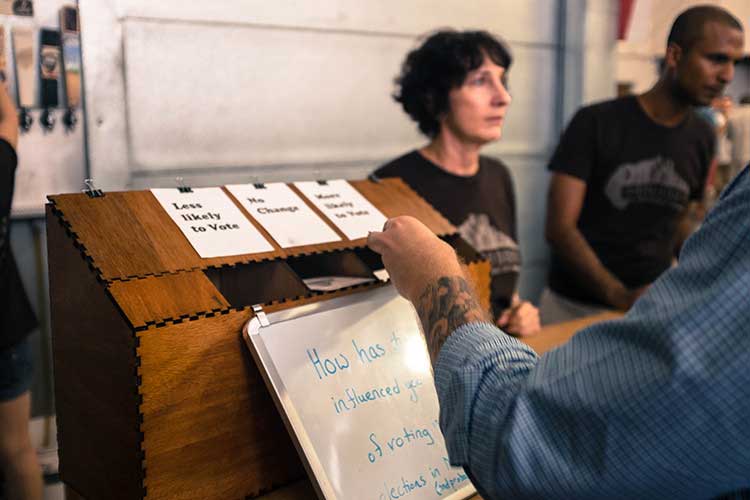 Less
likely
to Vote
No
Change
More
likely
to Vote
How has
influenced
of voting
elections in